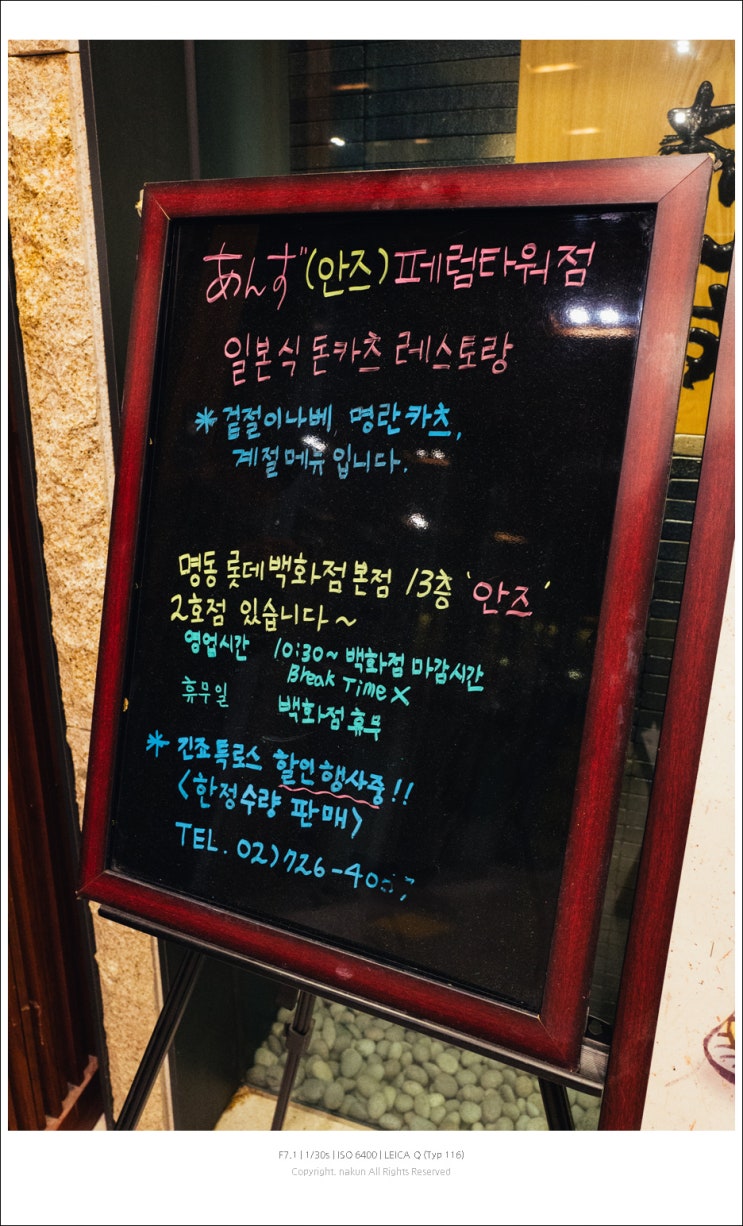 あんず (안즈) 페럼타워점
일본식 돈카츠 레스토랑
* 겉절이나베, 명란카츠,
계절메뉴입니다.
명동 롯데백화점본점 13층 '안즈'
2호점 있습니다~
영업시간 10:30~ 백화점 마감시간
Break Time X
휴무일 백화점 휴무
* 긴죠특로스 할인행사중!!
<한정수량 판매>
TEL. 02)726-
F7.1 | 1/30s | ISO 6400 | LEICA Q (Typ 116)
Copyright. nakun All Rights Reserved